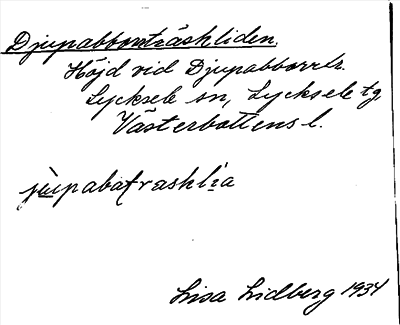 Djupabborrträskliden.
Höjd vid Djupabborrtr.
Lycksele sn, Lycksele tg
Västerbottens l.
Lisa Lidberg 1934